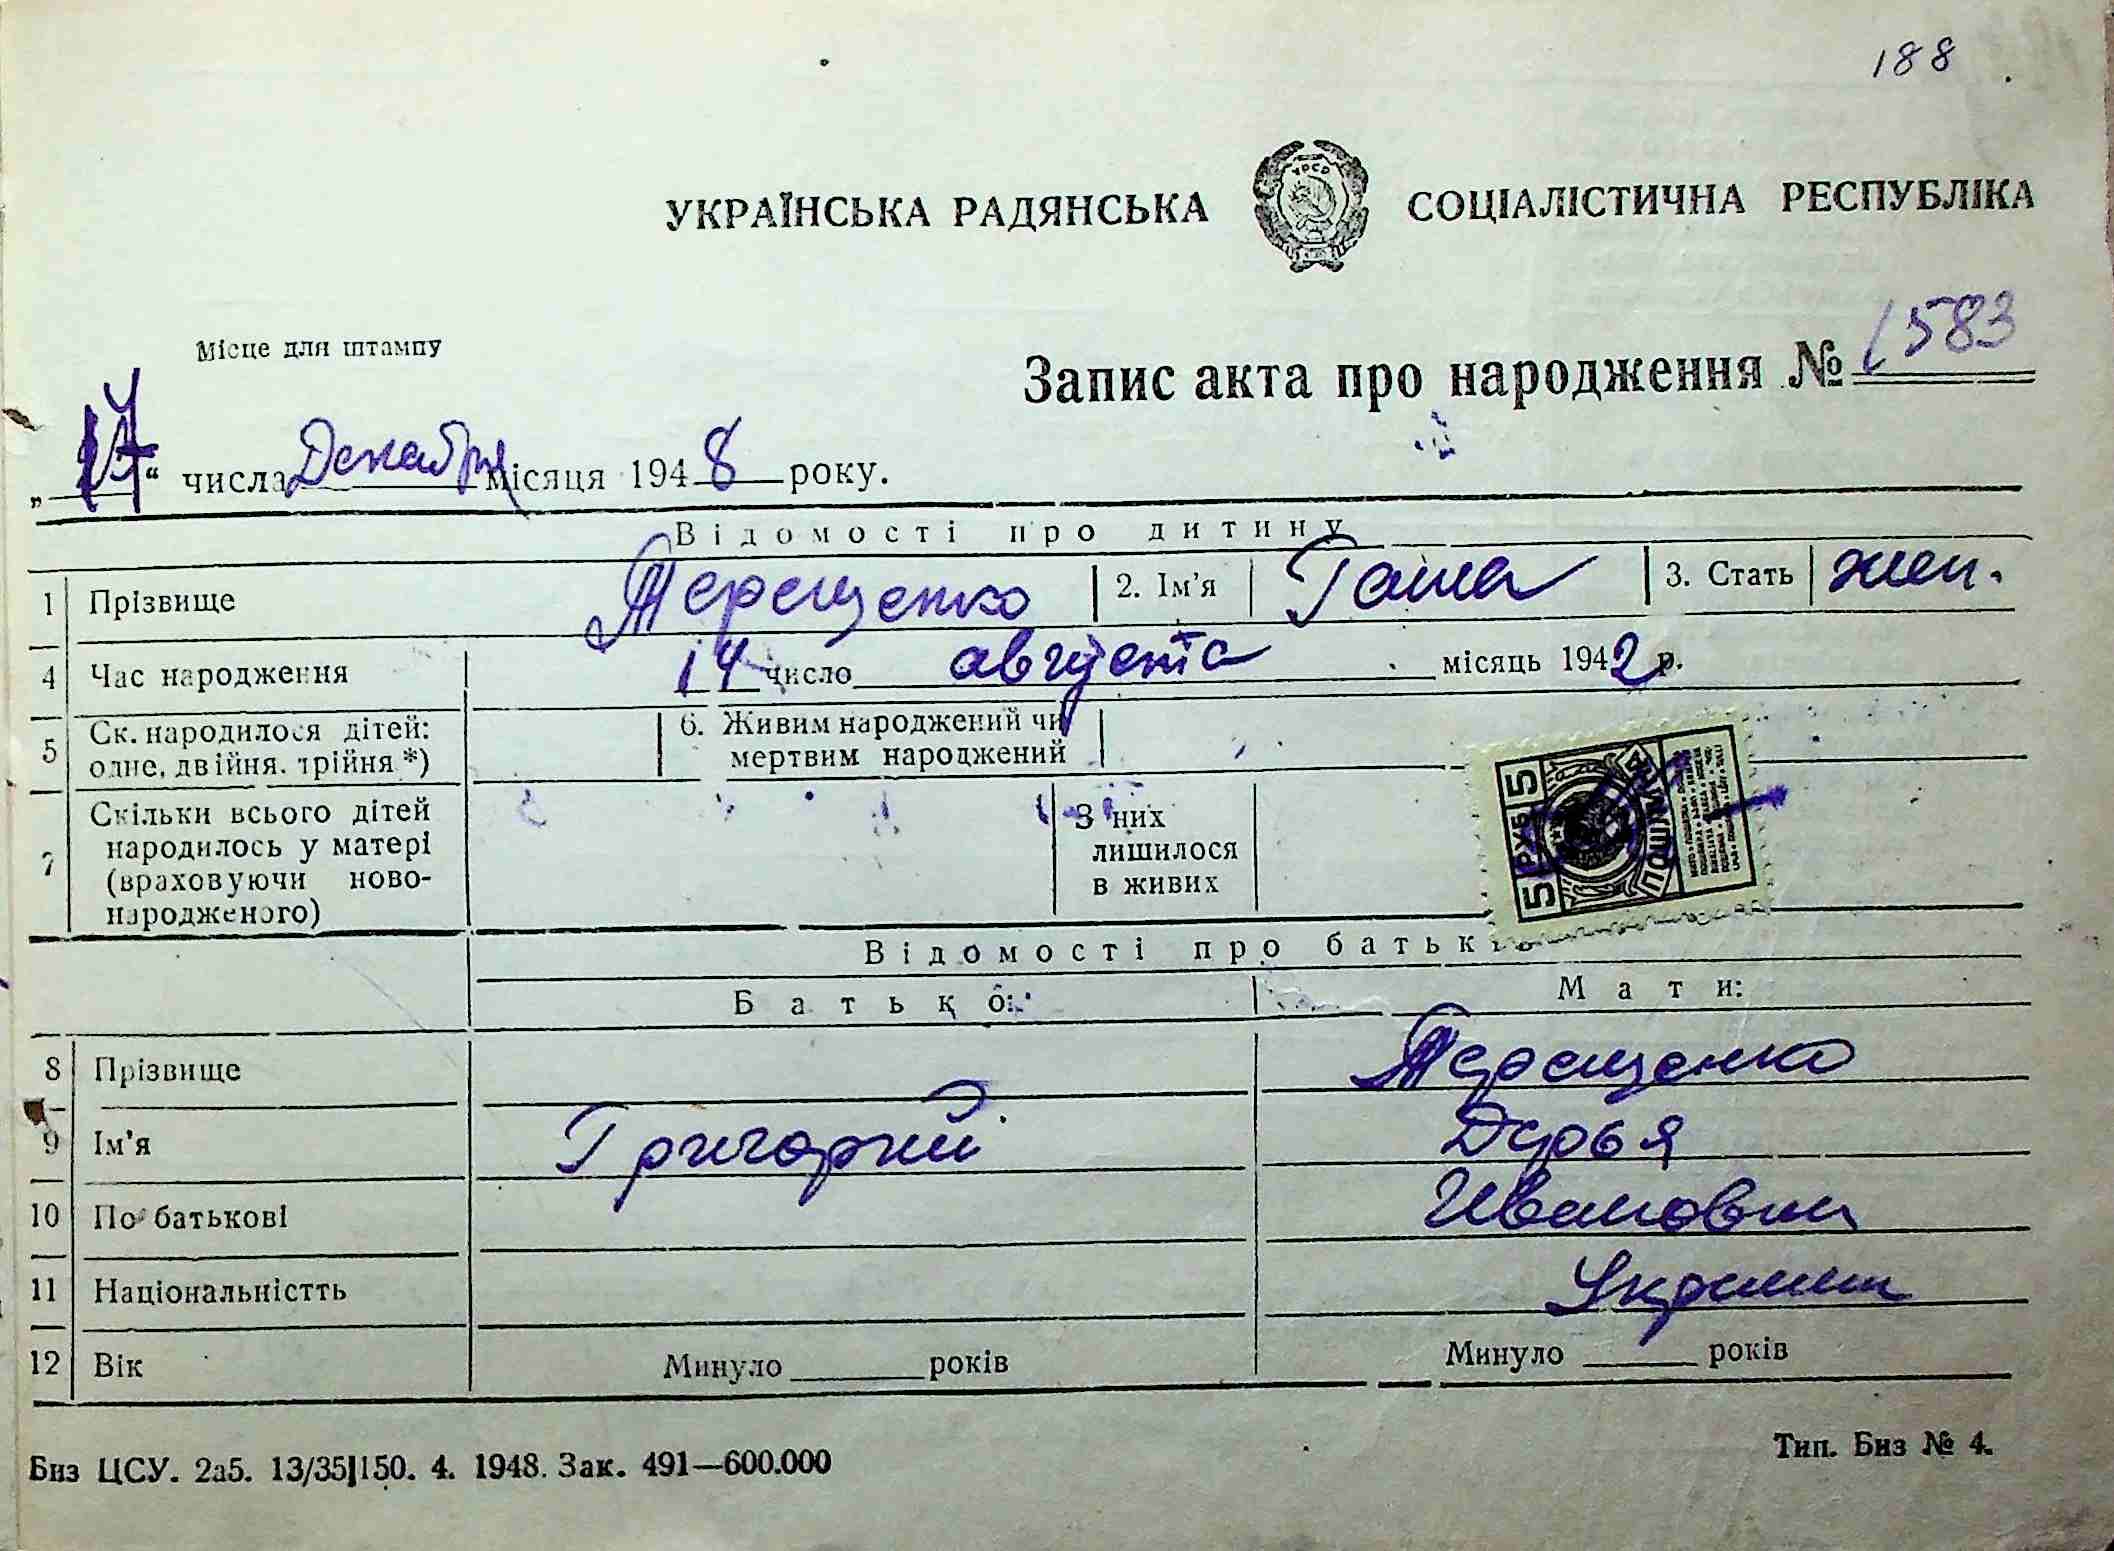 188
УКРАЇНСЬКА РАДЯНСЬКА СОЦІАЛІСТИЧНА РЕСПУБЛІКА
УРСР
Місце для штампу
Запис акта про народження № 1583
„ “ числа Декабря місяця 1948 року.
Відомості про дитину
1 Прізвище Терещенко 2. Ім'я Галина 3. Стать жен.
4 Час народження 14 число августа місяць 1942 р.
5 Ск. народилося дітей: одне, двійня, трійня *) 6. Живим народжений чи мертвим народжений
7 Скільки всього дітей народилось у матері (враховуючи новонародженого) З них лишилося в живих
5 РУБ 5
ПОШЛИНА
Відомості про батьків
Батько: Мати:
8 Прізвище Терещенко
9 Ім'я Григорий Дарья
10 По батькові Ивановна
11 Національністть Украинк
12 Вік Минуло ____ років Минуло ____ років
Биз ЦСУ. 2а5. 13/35|150. 4. 1948. Зак. 491—600.000
Тип. Биз № 4.